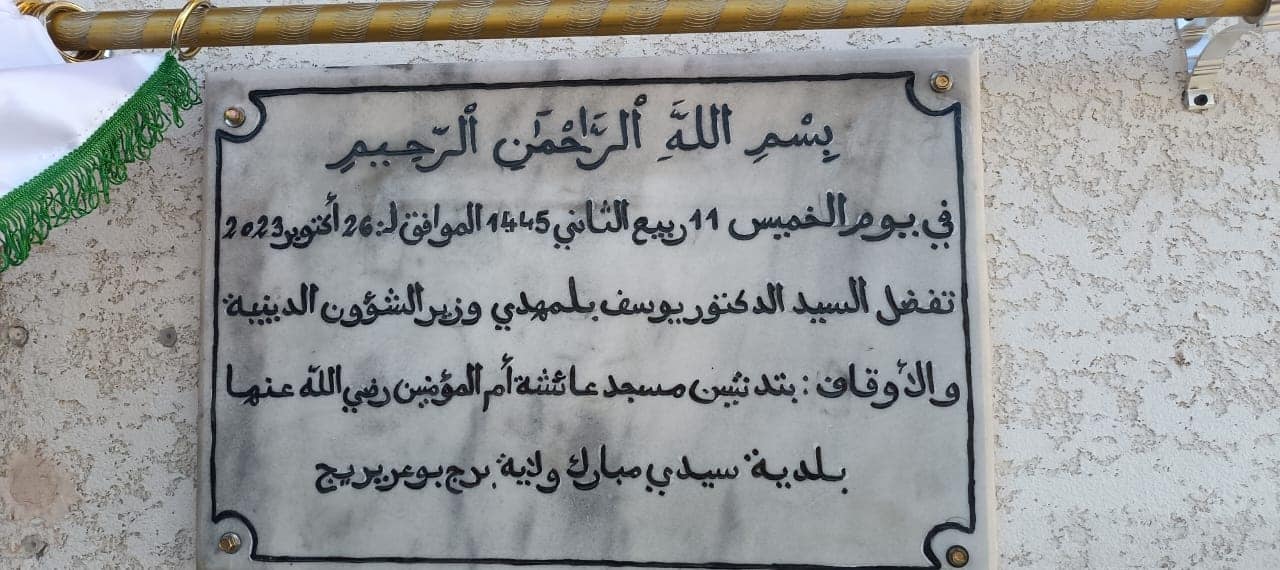 بِسْمِ اللهَِ الرَّحْمَٰنِ الرّحِيمِ
في يوم الخميس 11 ربيع الثاني 1445 الموافق لـ: 26 أكتوبر 2023
تفضل السيد الدكتور يوسف بلمهدي وزير الشؤون الدينية
والأوقاف : بتدشين مسجد عائشة أم المؤمنين رضي اللّه عنها
بلدية سيدي مبارك ولاية برج بوعريريج